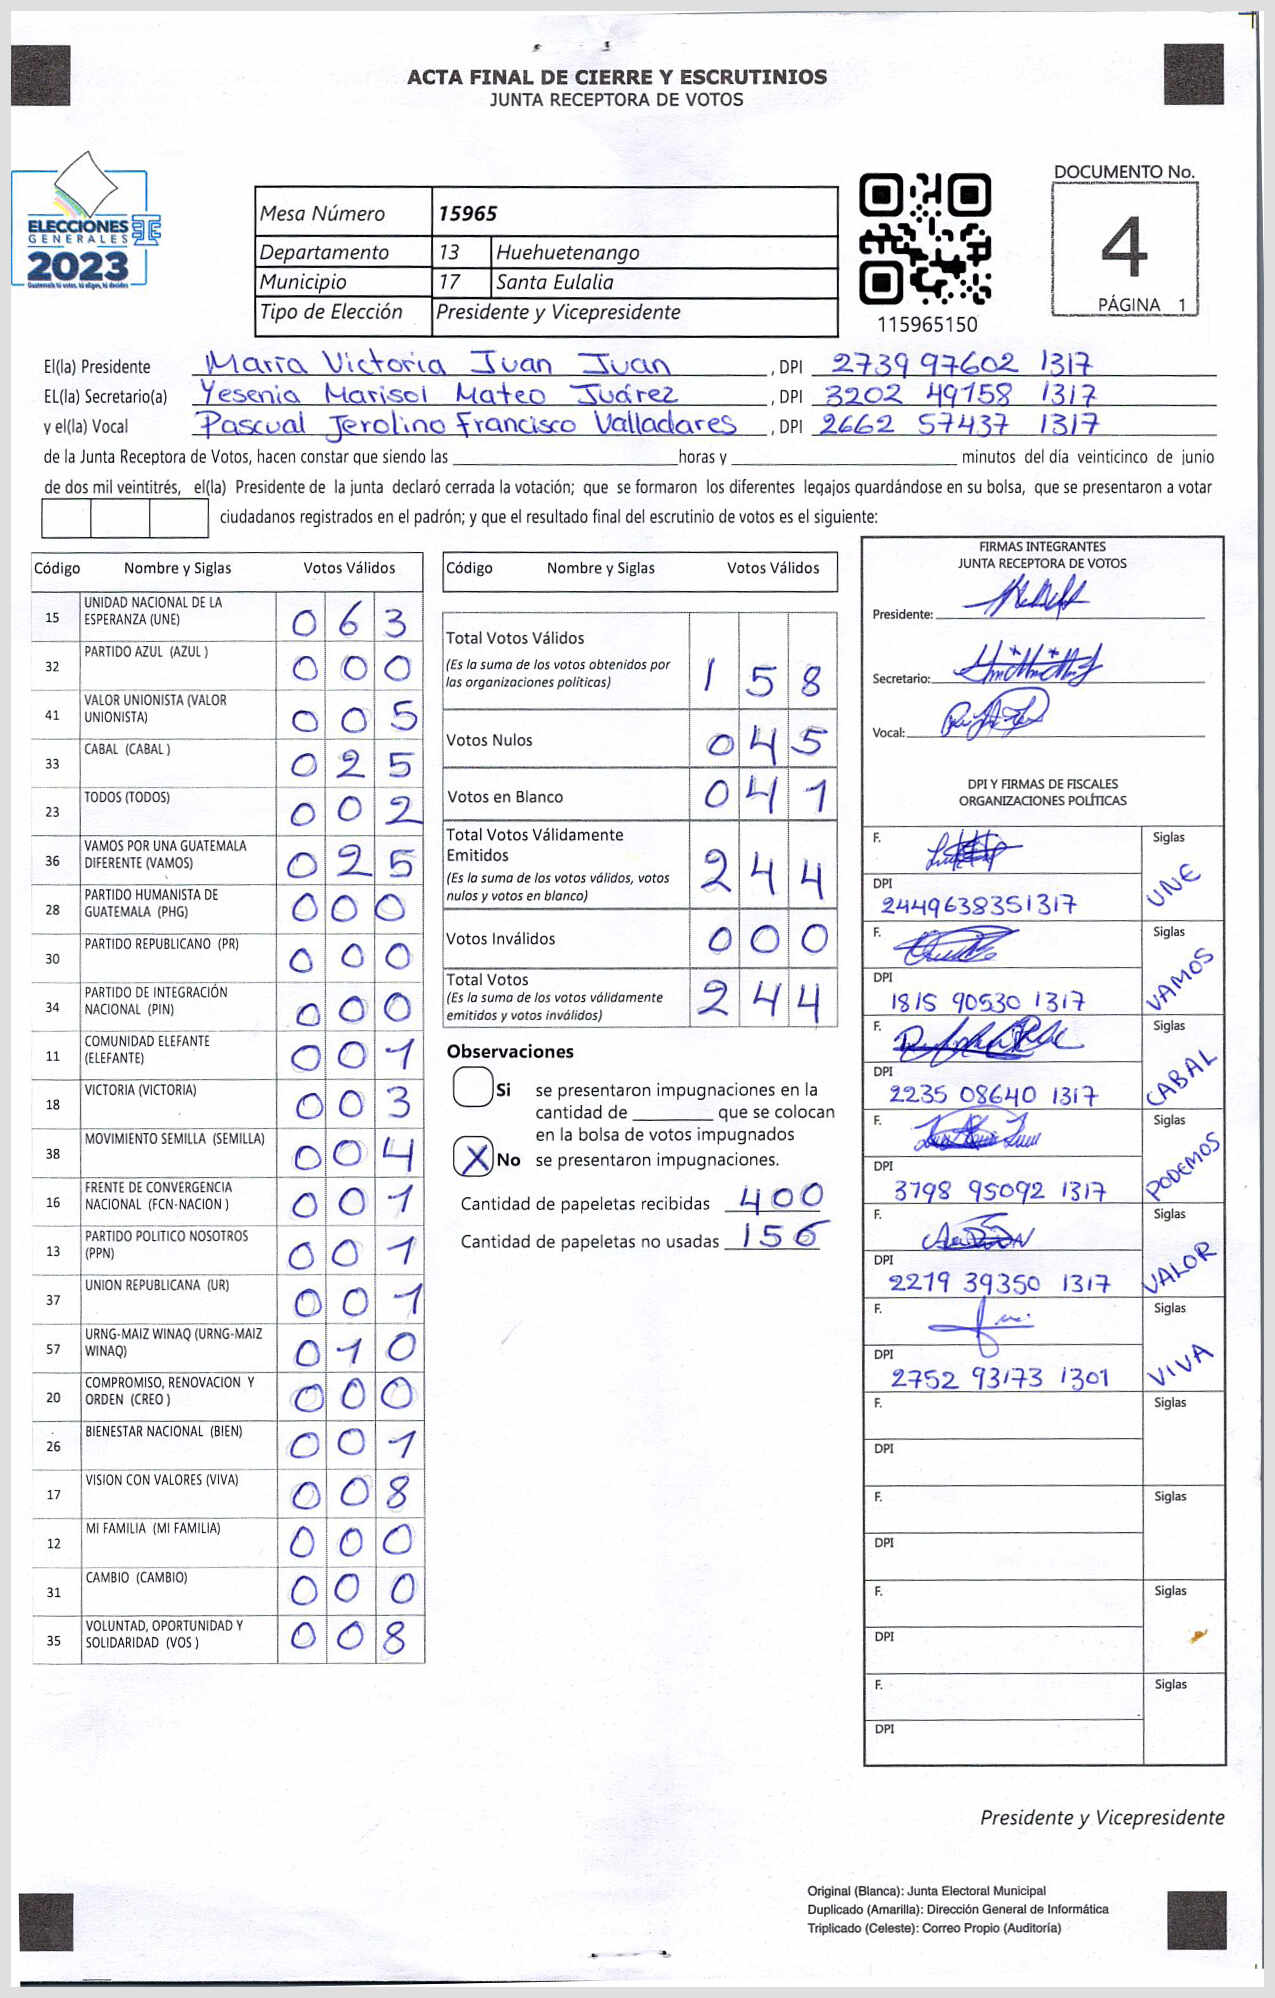 ACTA FINAL DE CIERRE Y ESCRUTINIOS
JUNTA RECEPTORA DE VOTOS
ELECCIONES
GENERALES
2023
Guatemala tú votas, tú eliges, tú decides
Mesa Número 15965
Departamento 13 Huehuetenango
Municipio 17 Santa Eulalia
Tipo de Elección Presidente y Vicepresidente
115965150
DOCUMENTO No.
4
PÁGINA 1
El(la) Presidente María Victoria Juan Juan , DPI 2739 97602 1317
EL(la) Secretario(a) Yesenia Marisol Mateo Juárez , DPI 3202 49158 1317
y el(la) Vocal Pascual Jerolino Francisco Valladares , DPI 2662 57437 1317
de la Junta Receptora de Votos, hacen constar que siendo las horas y minutos del día veinticinco de junio
de dos mil veintitrés, el(la) Presidente de la junta declaró cerrada la votación; que se formaron los diferentes legajos guardándose en su bolsa, que se presentaron a votar
ciudadanos registrados en el padrón; y que el resultado final del escrutinio de votos es el siguiente:
Código Nombre y Siglas Votos Válidos
15 UNIDAD NACIONAL DE LA
ESPERANZA (UNE) 063
32 PARTIDO AZUL (AZUL ) 000
41 VALOR UNIONISTA (VALOR
UNIONISTA) 005
33 CABAL (CABAL ) 025
23 TODOS (TODOS) 002
36 VAMOS POR UNA GUATEMALA
DIFERENTE (VAMOS) 025
28 PARTIDO HUMANISTA DE
GUATEMALA (PHG) 000
30 PARTIDO REPUBLICANO (PR) 000
34 PARTIDO DE INTEGRACIÓN
NACIONAL (PIN) 000
11 COMUNIDAD ELEFANTE
(ELEFANTE) 001
18 VICTORIA (VICTORIA) 003
38 MOVIMIENTO SEMILLA (SEMILLA) 004
16 FRENTE DE CONVERGENCIA
NACIONAL (FCN-NACION ) 001
13 PARTIDO POLITICO NOSOTROS
(PPN) 001
37 UNION REPUBLICANA (UR) 001
57 URNG-MAIZ WINAQ (URNG-MAIZ
WINAQ) 010
20 COMPROMISO, RENOVACION Y
ORDEN (CREO ) 000
26 BIENESTAR NACIONAL (BIEN) 001
17 VISION CON VALORES (VIVA) 008
12 MI FAMILIA (MI FAMILIA) 000
31 CAMBIO (CAMBIO) 000
35 VOLUNTAD, OPORTUNIDAD Y
SOLIDARIDAD (VOS ) 008
Código Nombre y Siglas Votos Válidos
Total Votos Válidos
(Es la suma de los votos obtenidos por
las organizaciones políticas) 158
Votos Nulos 045
Votos en Blanco 041
Total Votos Válidamente
Emitidos
(Es la suma de los votos válidos, votos
nulos y votos en blanco) 244
Votos Inválidos 000
Total Votos
(Es la suma de los votos válidamente
emitidos y votos inválidos) 244
Observaciones
Si se presentaron impugnaciones en la
cantidad de que se colocan
en la bolsa de votos impugnados
X No se presentaron impugnaciones.
Cantidad de papeletas recibidas 400
Cantidad de papeletas no usadas 156
FIRMAS INTEGRANTES
JUNTA RECEPTORA DE VOTOS
Presidente:
Secretario:
Vocal:
DPI Y FIRMAS DE FISCALES
ORGANIZACIONES POLÍTICAS
F. Siglas
DPI UNE
2449638351317
F. Siglas
DPI VAMOS
1815 90530 1317
F. Siglas
DPI CABAL
2235 08640 1317
F. Siglas
DPI PODEMOS
3798 95092 1317
F. Siglas
DPI VALOR
2219 39350 1317
F. Siglas
DPI VIVA
2752 93173 1301
F. Siglas
DPI
F. Siglas
DPI
F. Siglas
DPI
F. Siglas
DPI
Presidente y Vicepresidente
Original (Blanca): Junta Electoral Municipal
Duplicado (Amarilla): Dirección General de Informática
Triplicado (Celeste): Correo Propio (Auditoría)